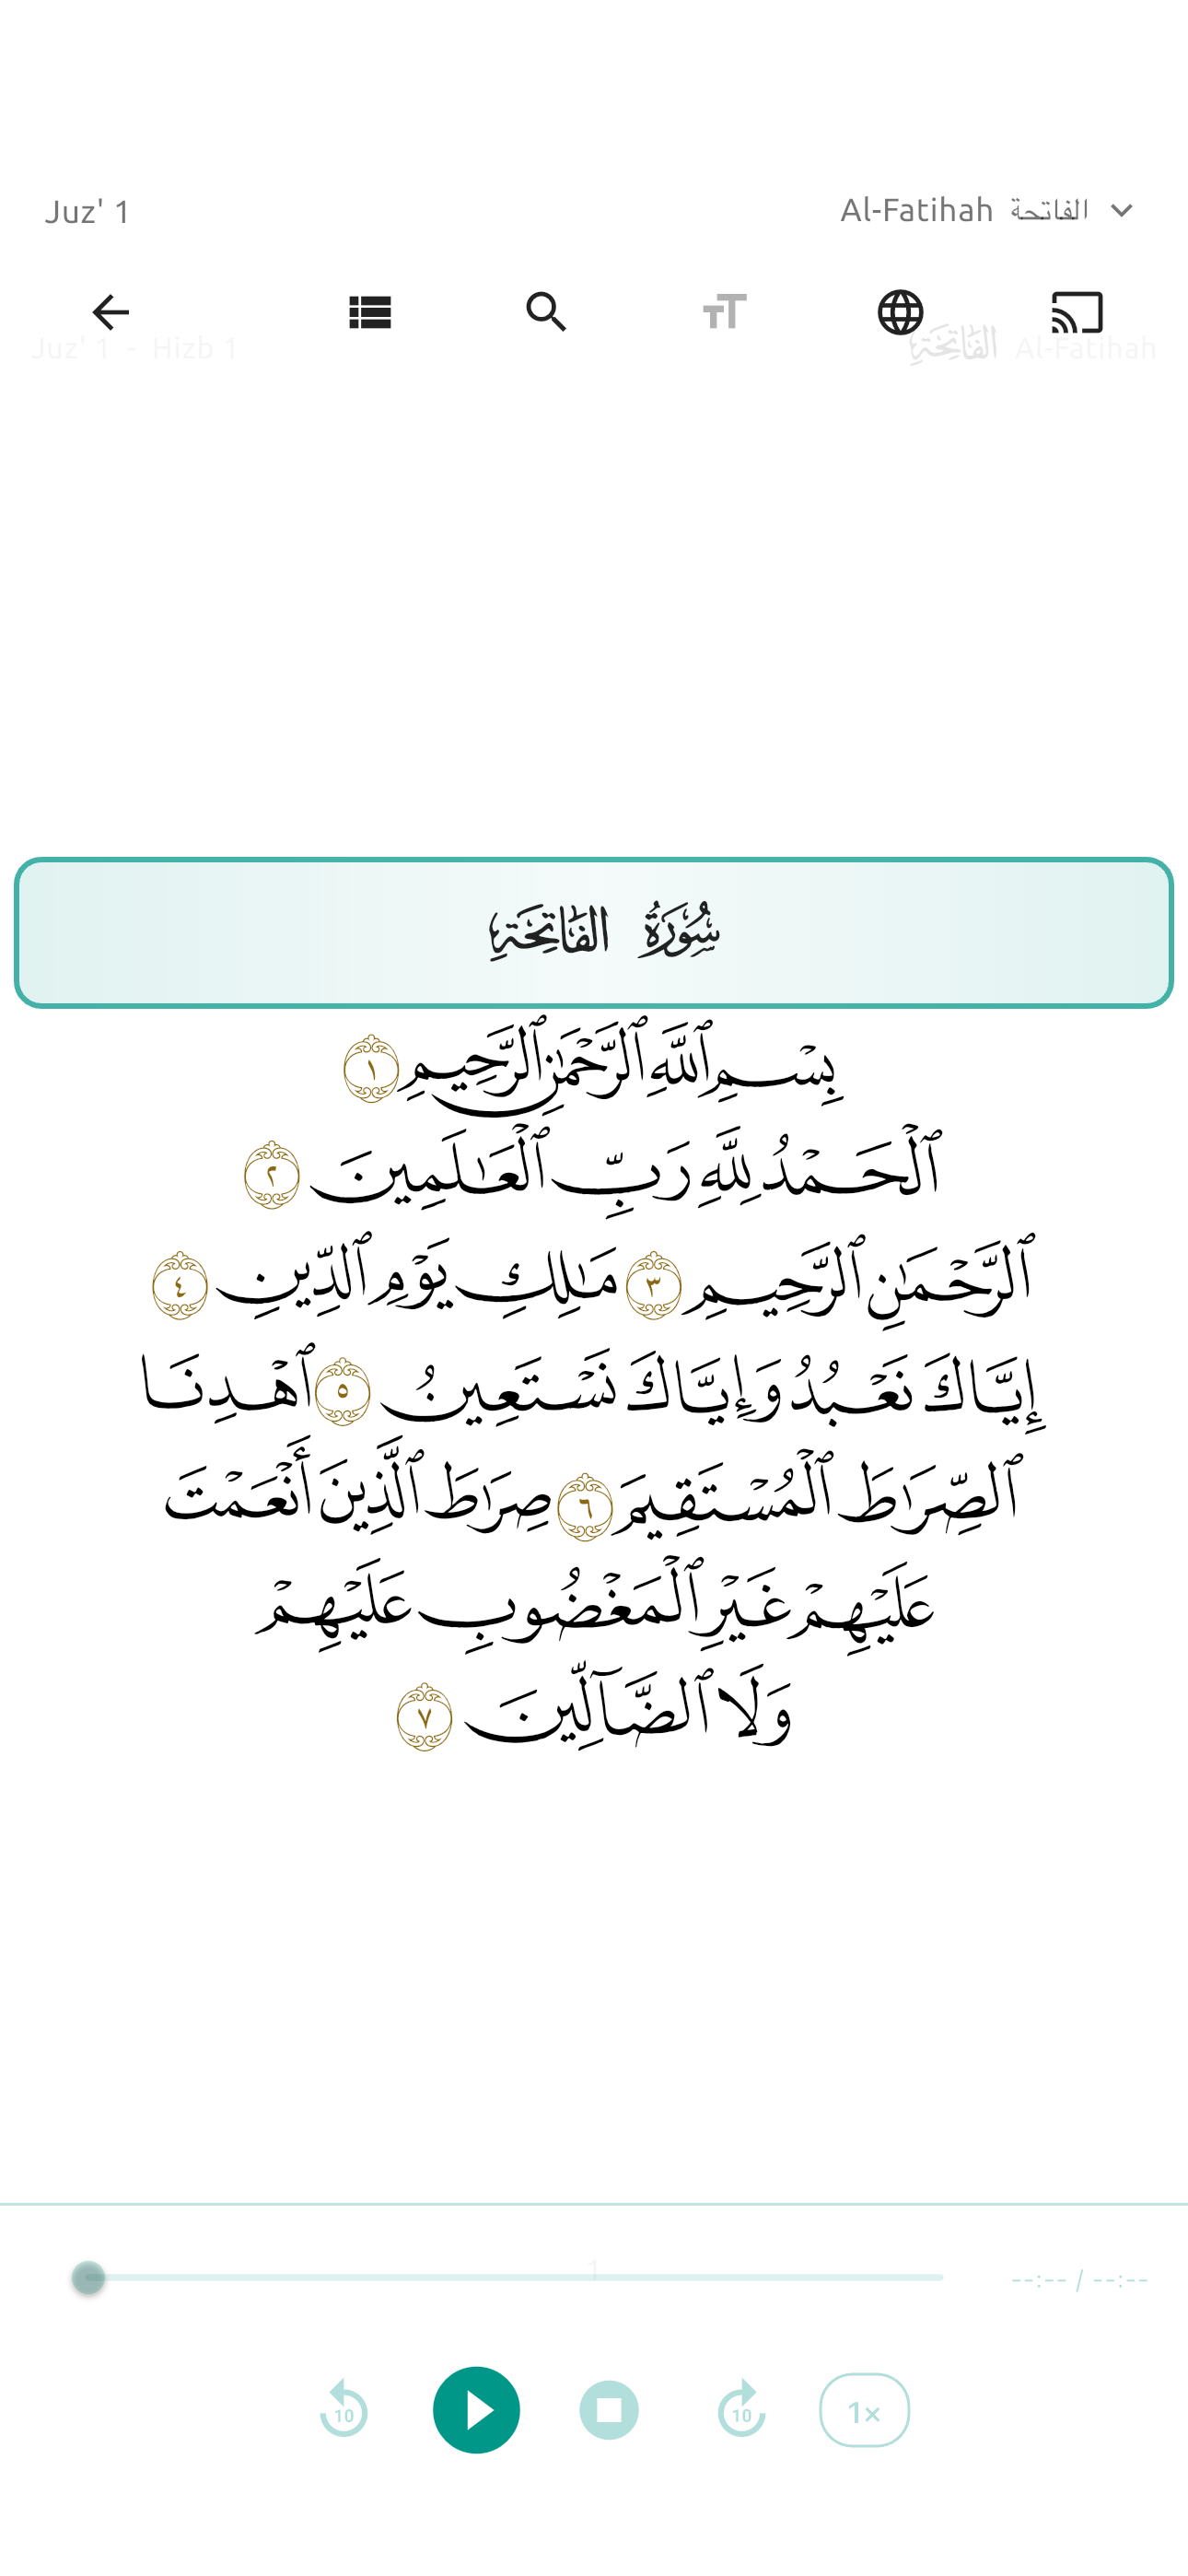 Juz' 1
Al-Fatihah الفاتحة
Juz' 1 - Hizb 1
الفَاتِحَةِ Al-Fatihah
سُورَةُ الفَاتِحَةِ
بِسْمِ ٱللَّهِ ٱلرَّحْمَٰنِ ٱلرَّحِيمِ ١
ٱلْحَمْدُ لِلَّهِ رَبِّ ٱلْعَٰلَمِينَ ٢
ٱلرَّحْمَٰنِ ٱلرَّحِيمِ ٣ مَٰلِكِ يَوْمِ ٱلدِّينِ ٤
إِيَّاكَ نَعْبُدُ وَإِيَّاكَ نَسْتَعِينُ ٥ ٱهْدِنَا
ٱلصِّرَٰطَ ٱلْمُسْتَقِيمَ ٦ صِرَٰطَ ٱلَّذِينَ أَنْعَمْتَ
عَلَيْهِمْ غَيْرِ ٱلْمَغْضُوبِ عَلَيْهِمْ
وَلَا ٱلضَّآلِّينَ ٧
1
--:-- / --:--
10
10
1×